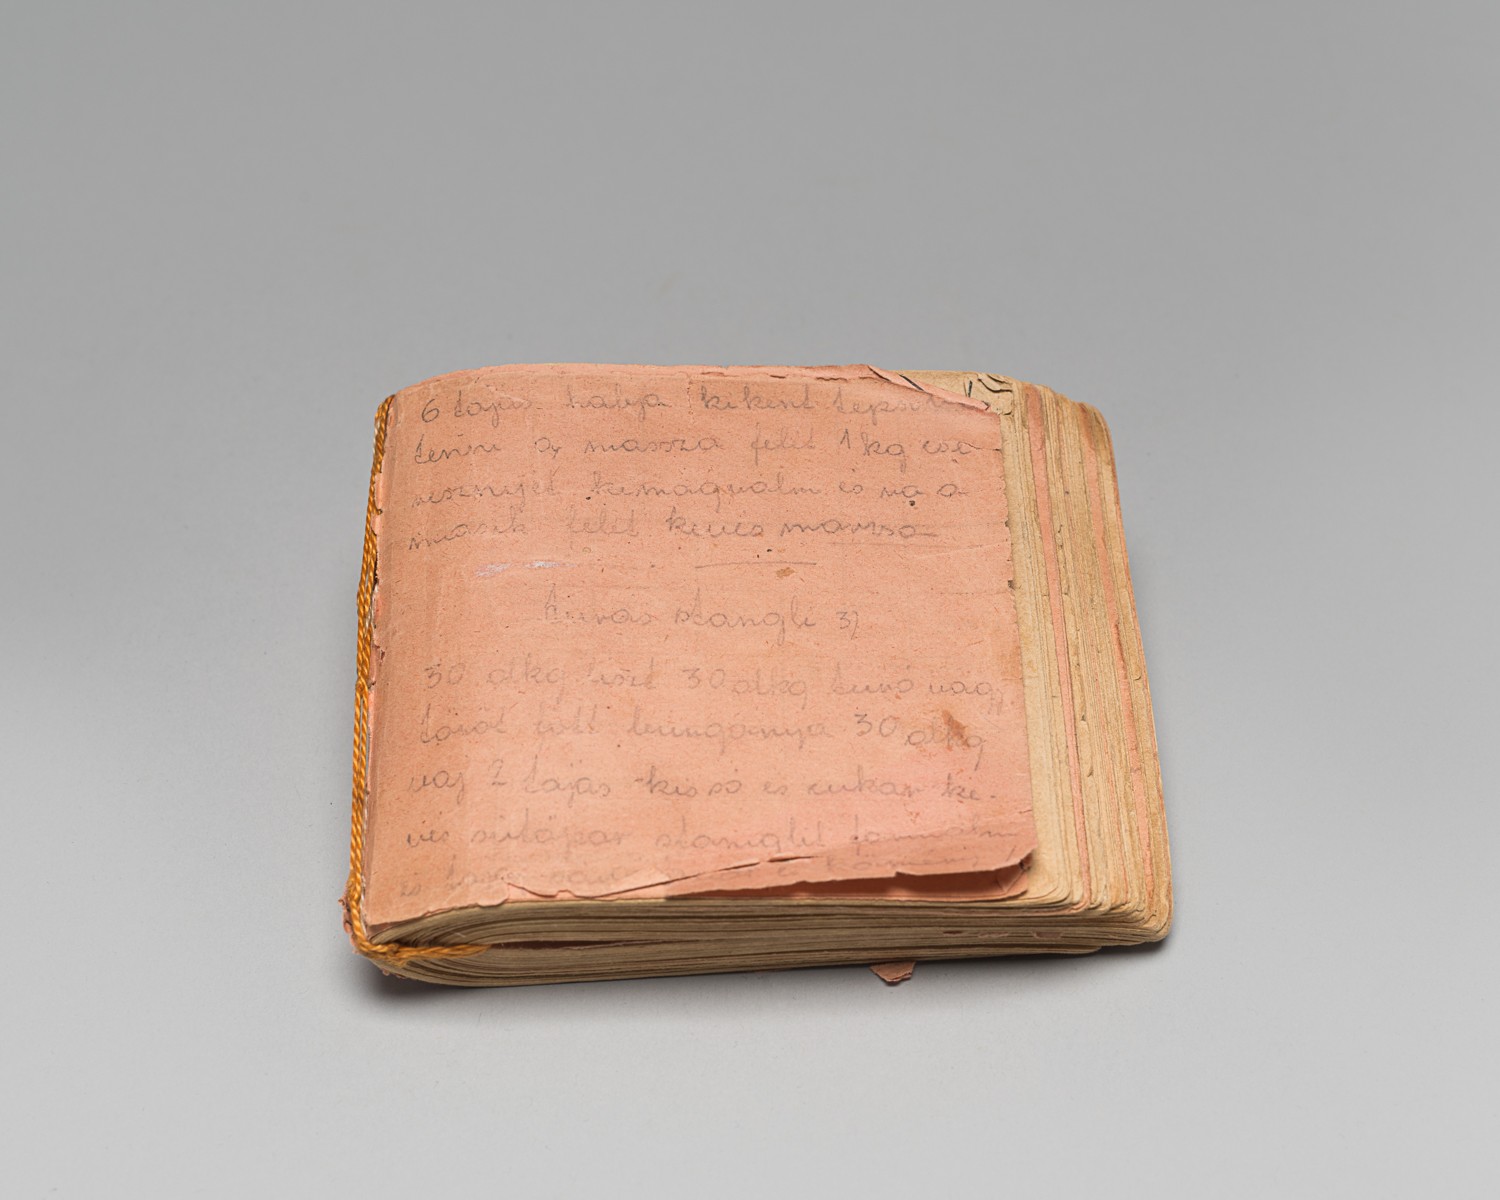 6 tojás habja kikent tepsibe
tenni a massza felit 1 kg cse-
resznyét kimagvalni és rá a
masik felit kevés massza
turós stangli 37
30 dkg liszt 30 dkg turó vagy
töröt fött burgonya 30 dkg
vaj 2 tojás kis só és cukor ke-
vés sütőpor stanglit formálni
és